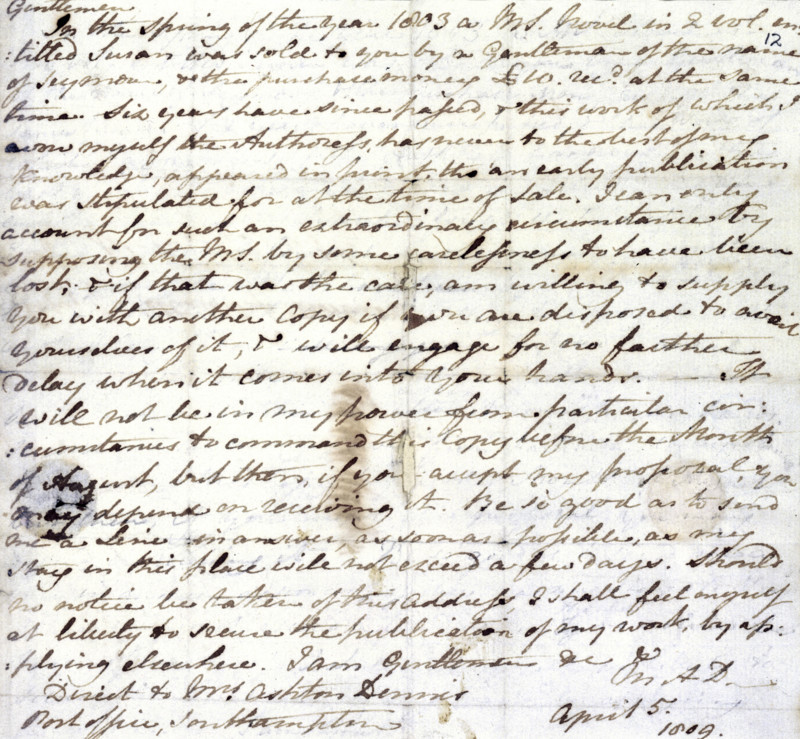 Gentlemen
In the spring of the year 1803 a MS. Novel in 2 vol. en
12
:titled Susan was sold to you by a Gentleman of the name
of Seymour, & the purchase money £10. recd. at the same
time. Six years have since passed, & this work of which I
avow myself the Authoress, has never to the best of my
knowledge, appeared in print, tho' an early publication
was stipulated for at the time of Sale. I can only
account for such an extraordinary circumstance by
supposing the MS. by some carelessness to have been
lost; & if that was the case, am willing to supply
you with another Copy if you are disposed to avail
yourselves of it, & will engage for no farther
delay when it comes into your hands. — It
will not be in my power from particular cir:
:cumstances to command this Copy before the Month
of August, but then, if you accept my proposal, you
may depend on receiving it. Be so good as to send
me a Line in answer, as soon as possible, as my
stay in this place will not exceed a few days. Should
no notice be taken of this Address, I shall feel myself
at liberty to secure the publication of my work, by ap:
:plying elsewhere. I am Gentlemen &c &c
M. A. D.—
Direct to Mrs Ashton Dennis
Post office, Southampton
April 5.
1809.